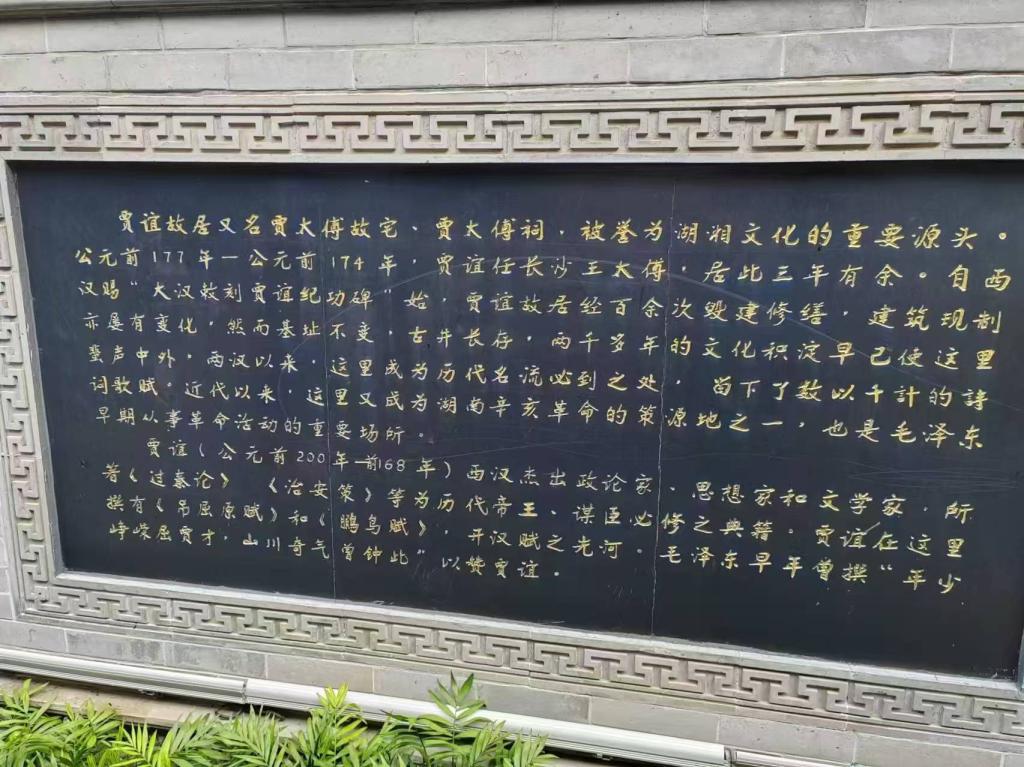 贾谊故居又名贾太傅故宅、贾太傅祠，被誉为湖湘文化的重要源头。
公元前177年—公元前174年，贾谊任长沙王太傅，居此三年有余。自西
汉赐“大汉敕刻贾谊纪功碑”始，贾谊故居经百余次毁建修缮，建筑规制
亦屡有变化，然而基址不变，古井长存，两千多年的文化积淀早已使这里
蜚声中外，两汉以来，这里成为历代名流必到之处，留下了数以千計的詩
词歌赋。近代以来，这里又成为湖南辛亥革命的策源地之一，也是毛泽东
早期从事革命活动的重要场所。
贾谊（公元前200年—前168年）西汉杰出政论家、思想家和文学家，所
著《过秦论》《治安策》等为历代帝王、谋臣必修之典籍。贾谊在这里
撰有《吊屈原赋》和《鵬鸟赋》，开汉赋之先河。毛泽东早年曾撰“年少
峥嵘屈贾才，山川奇气曾钟此”以赞贾谊。